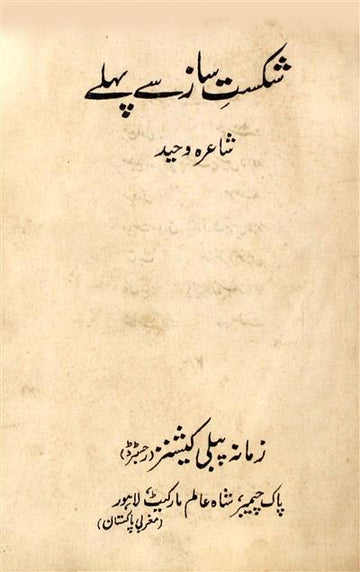 شکستِ ساز سے پہلے
شاعرہ وحید
زمانہ پبلی کیشنز (رجسٹرڈ)
پاک چیمبر، شاہ عالم مارکیٹ، لاہور
(مغربی پاکستان)